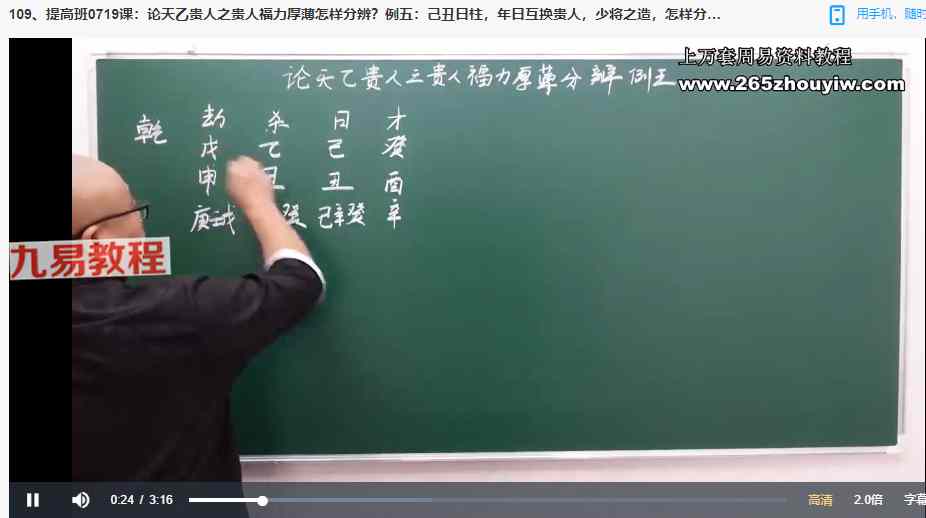 109、提高班0719课：论天乙贵人之贵人福力厚薄怎样分辨？例五：己丑日柱，年日互换贵人，少将之造，怎样分...
用手机、随时
上万套周易资料教程
论天乙贵人之贵人福力厚薄分辨 例五
www.265zhouyiw.com
乾 劫 杀 日 才
戊 乙 己 癸
申 丑 丑 酉
庚壬戊 癸 己辛癸 辛
九易教程
0:24 / 3:16 高清 2.0倍 字幕